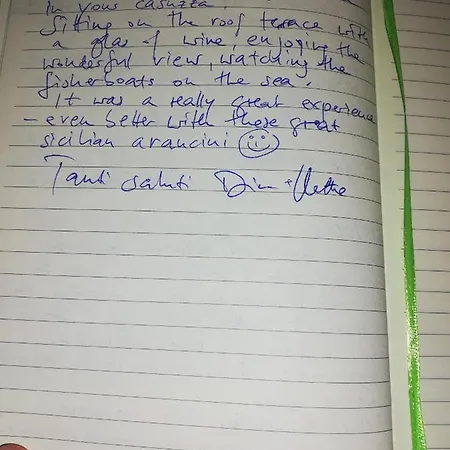 in your casuzza.
Sitting on the roof terrace with
a glas of wine, enjoying the
wonderful view, watching the
fisherboats on the sea.
It was a really great experience
- even better with these great
sicilian arancini
Tanti saluti